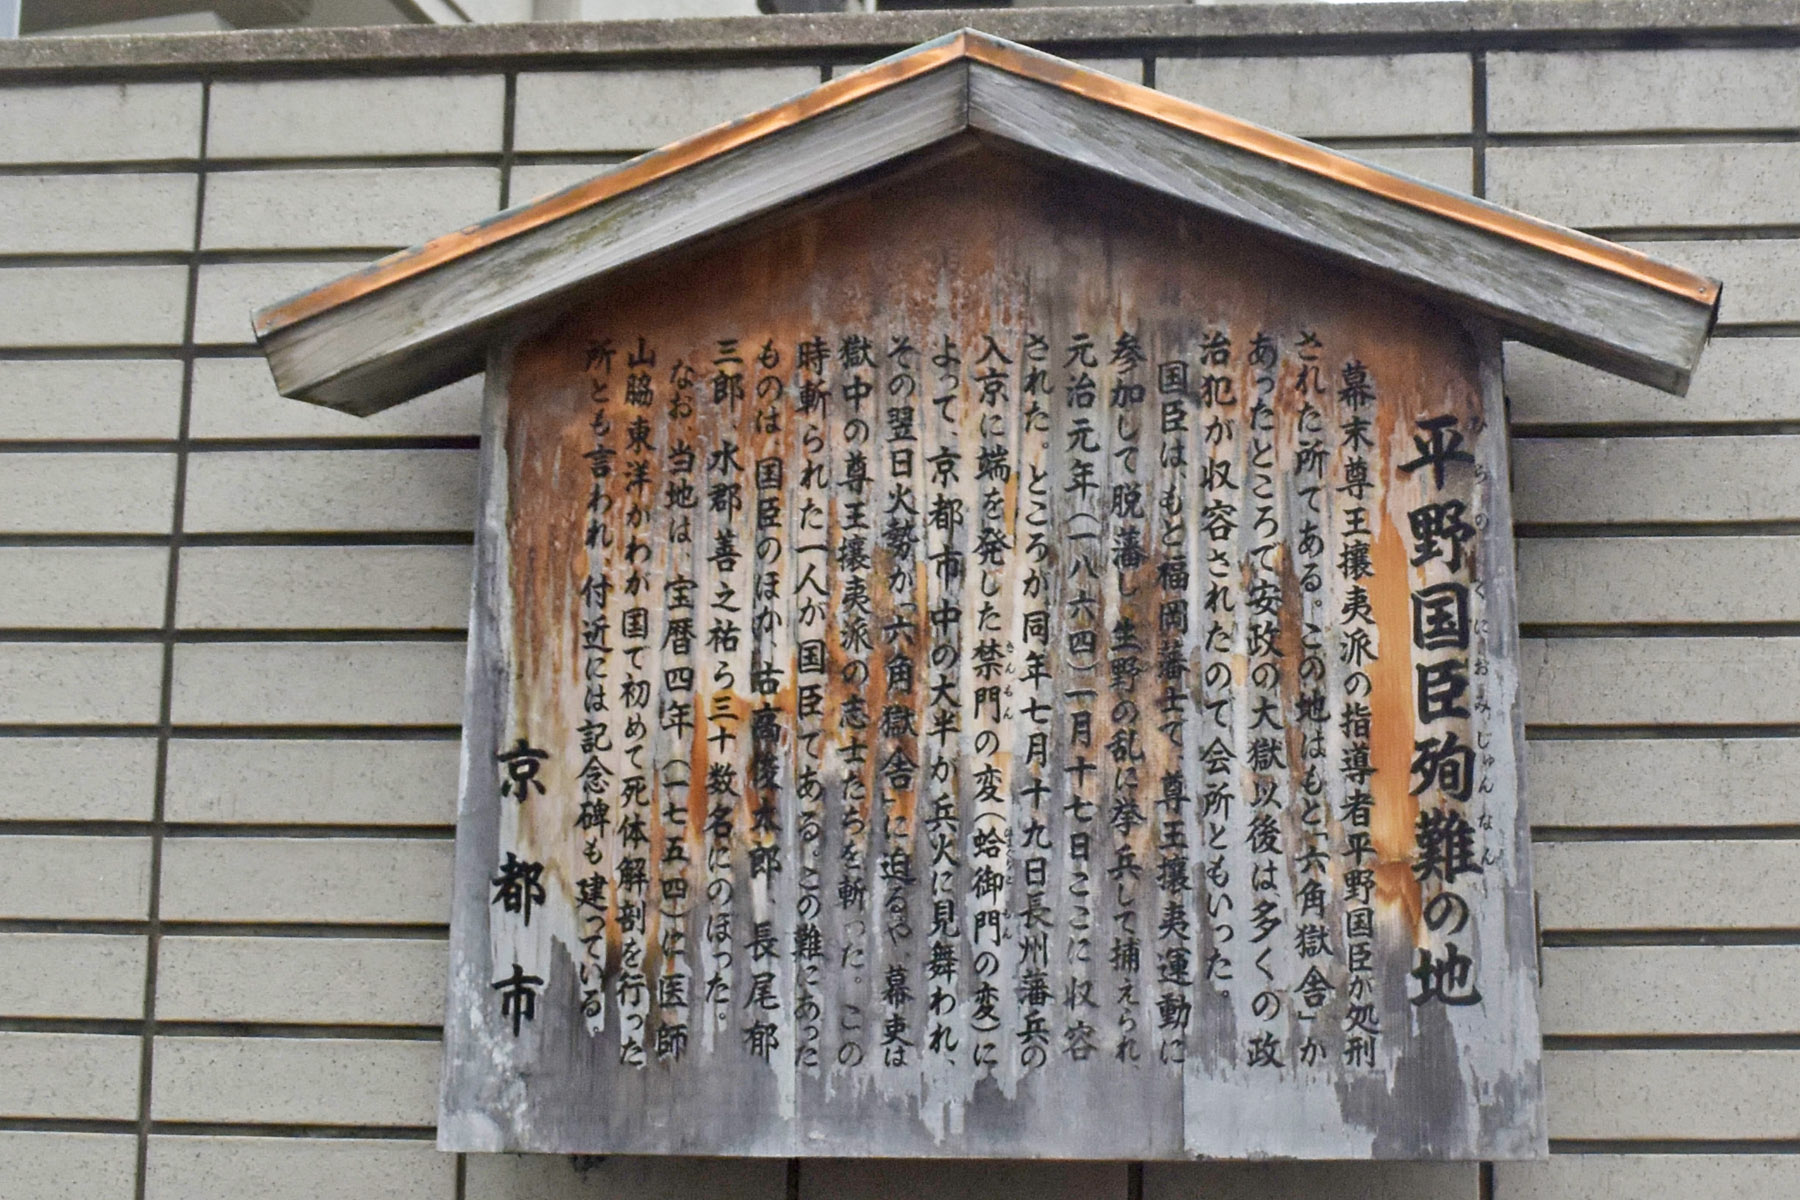 平野国臣殉難の地
幕末尊王攘夷派の指導者平野国臣が処刑
された所である。この地はもと「六角獄舎」が
あったところで安政の大獄以後は多くの政
治犯が収容されたので会所ともいった。
国臣は、もと福岡藩士で、尊王攘夷運動に
参加して脱藩し、生野の乱に挙兵して捕えられ、
元治元年(一八六四)一月十七日ここに収容
された。ところが同年七月十九日長州藩兵の
入京に端を発した禁門の変(蛤御門の変)に
よって、京都市中の大半が兵火に見舞われ、
その翌日火勢が「六角獄舎」に迫るや、幕吏は
獄中の尊王攘夷派の志士たちを斬った。この
時斬られた一人が国臣である。この難にあった
ものは、国臣のほか、古高俊太郎、長尾郁
三郎、水郡善之祐ら三十数名にのぼった。
なお、当地は、宝暦四年(一七五四)に医師
山脇東洋がわが国で初めて死体解剖を行った
所とも言われ、付近には記念碑も建っている。
京都市